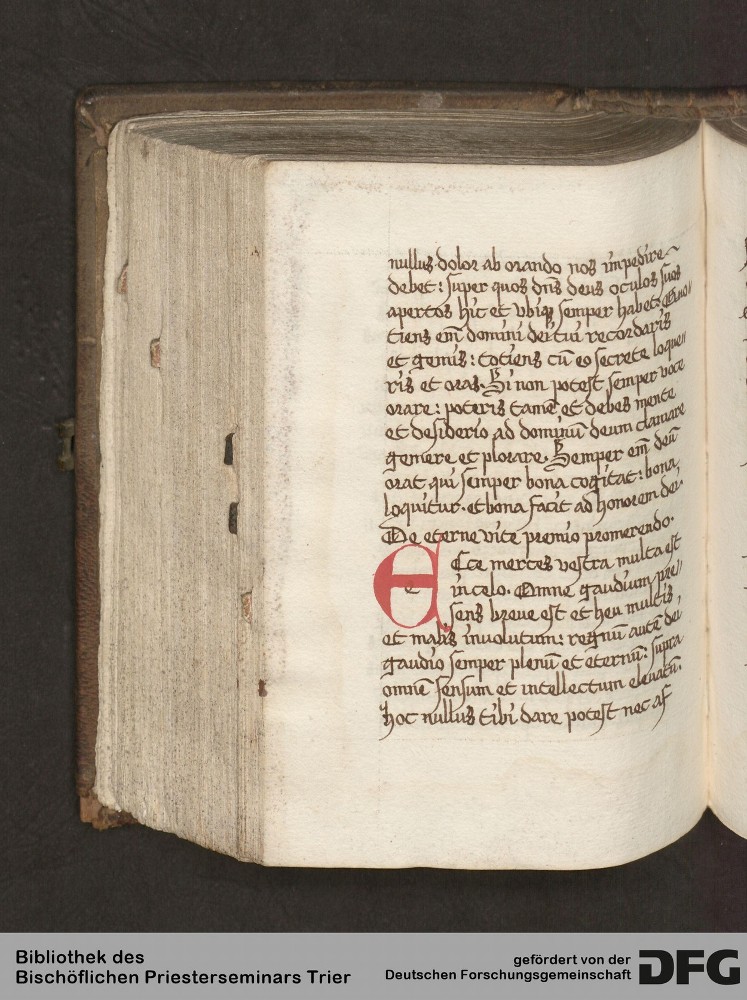 nullus dolor ab orando nos impedire
debet: super quos dn̄s deus oculos suos
apertos hic et vbiq; semper habet. Quo⸗
tiens em̄ domini dei tui recordaris
et gemis: totiens cū eo secrete loque⸗
ris et oras. Si non potest semper voce
orare: poteris tamē et debes mente
et desiderio ad dominū deum clamare
gemere et plorare. Semper em̄ deū
orat qui semper bona cogitat: bona
loquitur. et bona facit ad honorem dei.
De eterne vite premio promerendo.
Ecce merces vestra multa est
in celo. Omne gaudium pre⸗
sens breue est et heu multis
et malis inuolutum: regnū autē dei
gaudio semper plenū et eternū: supra
omnē sensum et intellectum eleuatū.
hoc nullus tibi dare potest nec af
Bibliothek des
Bischöflichen Priesterseminars Trier
gefördert von der
Deutschen Forschungsgemeinschaft DFG